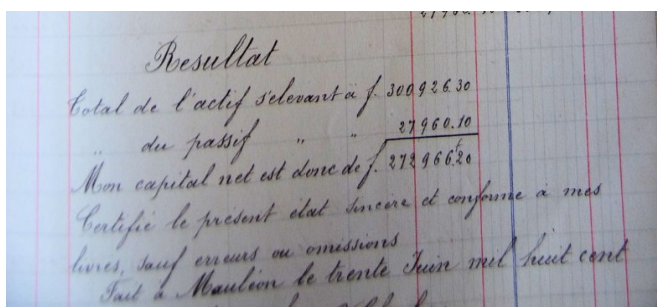 Resultat
Total de l'actif s'elevant à f. 300,926.30
„ du passif „ „ 27960.10
Mon capital net est donc de f. 272966.20
Certifié le présent état sincère et conforme à mes
livres, sauf erreurs ou omissions
Fait à Mauléon le trente Juin mil huit cent